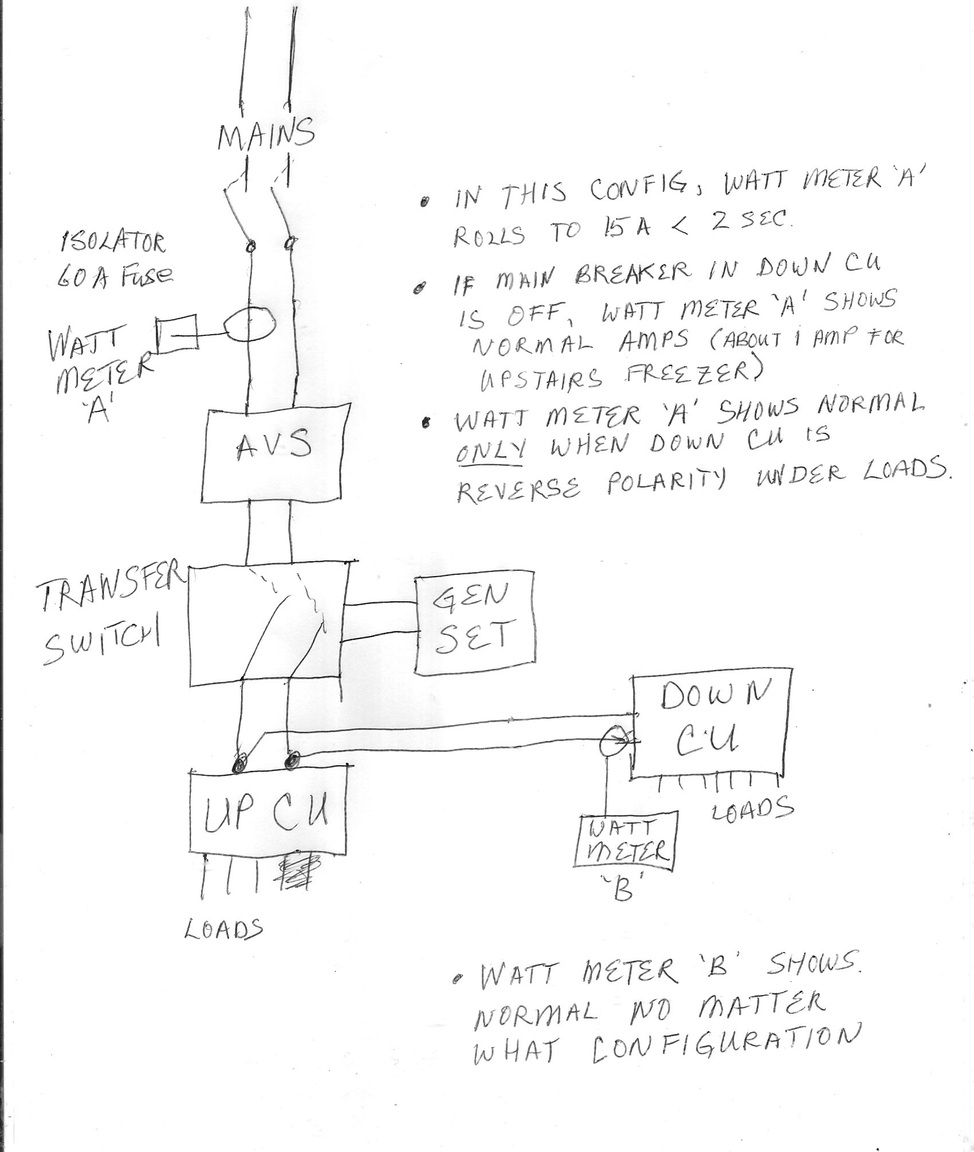 MAINS
ISOLATOR
60 A Fuse
WATT
METER
'A'
AVS
TRANSFER
SWITCH
GEN
SET
DOWN
C.U
LOADS
WATT
METER
'B'
UP CU
LOADS
• IN THIS CONFIG, WATT METER 'A'
ROLLS TO 15 A < 2 SEC.
• IF MAIN BREAKER IN DOWN CU
IS OFF, WATT METER 'A' SHOWS
NORMAL AMPS (ABOUT 1 AMP FOR
UPSTAIRS FREEZER)
• WATT METER 'A' SHOWS NORMAL
ONLY WHEN DOWN CU IS
REVERSE POLARITY UNDER LOADS.
• WATT METER 'B' SHOWS.
NORMAL NO MATTER
WHAT CONFIGURATION